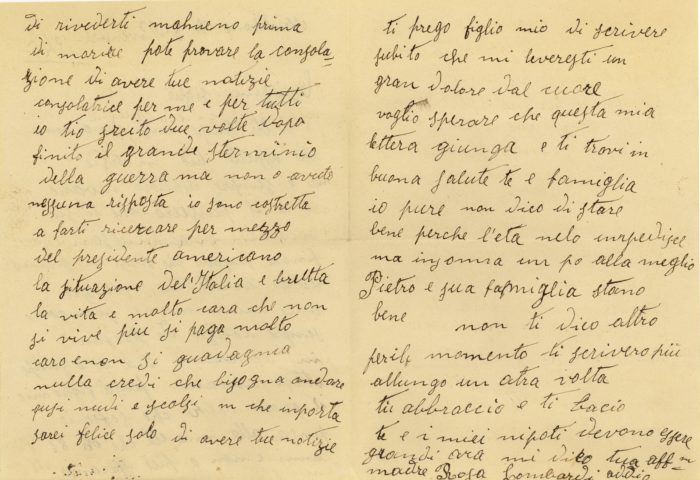 di rivederti mahneno prima
di morire pote provare la consola-
zione di avere tue notizie
consolatrice per me e per tutti
io tio scrito due volte dopo
finito il grande sterminio
della guerra ma non o avuto
nessuna risposta io sono costretta
a farti ricercare per mezzo
del presidente americano
la situazione del'Italia e brutta
la vita e molto cara che non
si vive piu si paga molto
caro e non si guadagnia
nulla credi che bisogna andare
qusi nudi e scolzi m che inporta
sarei felice solo di avere tue notizie
ti prego figlio mio di scrivere
subito che mi leveresti un
gran dolore dal cuore
voglio sperare che questa mia
lettera giunga e ti trovi in
buona salute te e famiglia
io pure non dico di stare
bene perche l'eta nelo inpedisce
ma insomma un po alla meglio
Pietro e sua famiglia stano
bene non ti dico altro
per il momento ti scrivero piu
allungo un atra volta
tu abbraccio e ti bacio
te e i miei nipoti devono essere
grandi ora mi dico tua aff
madre Rosa Lombardi addio